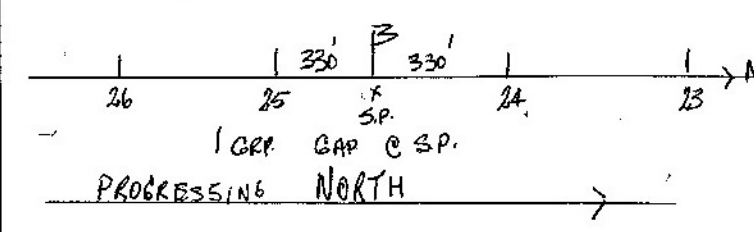 3
330' 330'
N
26 25 x 24 23
S.P.
1 GRP. GAP @ S.P.
PROGRESSING NORTH